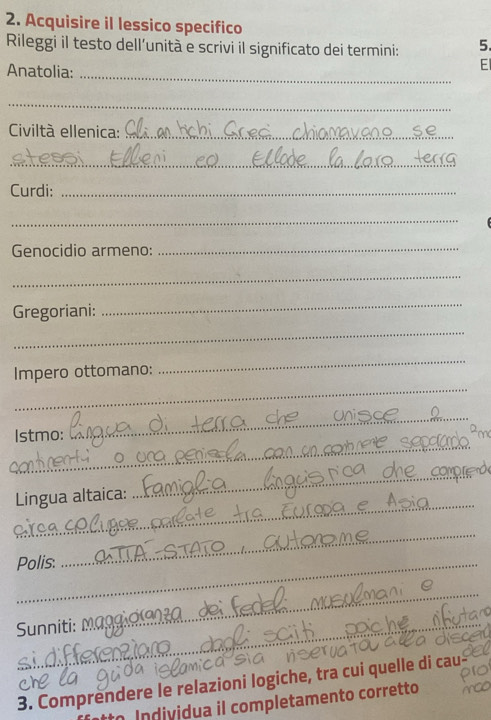 2. Acquisire il lessico specifico
Rileggi il testo dell'unità e scrivi il significato dei termini:
5.
Anatolia:
El
Civiltà ellenica: Gli antichi Greci chiamavano se
stessi Elleni ed Ellade la loro terra
Curdi:
Genocidio armeno:
Gregoriani:
Impero ottomano:
Istmo: lingua di terra che unisce 2
continenti o una penisola con un continente separando 2 m
Lingua altaica: Famiglia linguistica che comprende
circa 60 lingue parlate tra Europa e Asia
Polis: CITTÀ-STATO, autonome
Sunniti: maggioranza dei fedeli musulmani e
si differenziano dagli sciiti poiché rifiutano
che la guida islamica sia riservata alla discen
3. Comprendere le relazioni logiche, tra cui quelle di cau-
Individua il completamento corretto